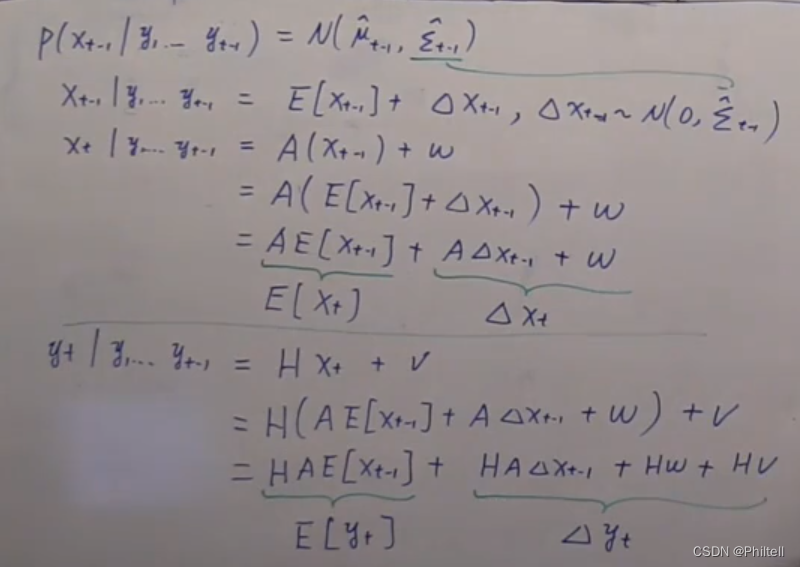 P(x_{t-1} | y_1 ... y_{t-1}) = N(μ̂_{t-1}, Σ̂_{t-1})
x_{t-1} | y_1 ... y_{t-1} = E[x_{t-1}] + Δx_{t-1}, Δx_{t-1} ~ N(0, Σ̂_{t-1})
x_t | y_1 ... y_{t-1} = A(x_{t-1}) + w
= A(E[x_{t-1}] + Δx_{t-1}) + w
= A E[x_{t-1}] + A Δx_{t-1} + w
E[x_t] Δx_t
y_t | y_1 ... y_{t-1} = H x_t + v
= H(A E[x_{t-1}] + A Δx_{t-1} + w) + v
= H A E[x_{t-1}] + H A Δx_{t-1} + Hw + Hv
E[y_t] Δy_t
CSDN @Philtell